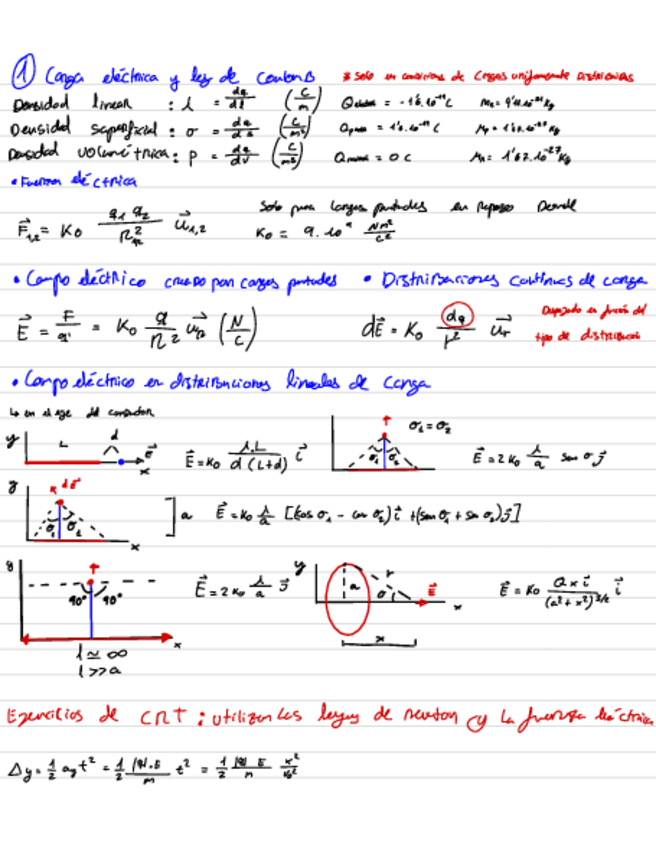 ① Carga eléctrica y ley de Coulomb * Solo en condiciones de cargas uniformemente distribuidas
Densidad linear : λ = dq/dl (C/m) Qelectron = -1'6.10⁻¹⁹ C me = 9'11.10⁻³¹ kg
Densidad superficial : σ = dq/ds (C/m²) Qproton = 1'6.10⁻¹⁹ C mp = 1'67.10⁻²⁷ kg
Densidad volumétrica : ρ = dq/dv (C/m³) Qneutron = 0 C mn = 1'67.10⁻²⁷ kg
• Fuerza eléctrica
F⃗₁,₂ = K₀ q₁ q₂ / r₁₂² u⃗₁,₂ Solo para cargas puntuales en reposo
K₀ = 9.10⁹ Nm²/C²
• Campo eléctrico creado por cargas puntuales • Distribuciones continuas de carga
E⃗ = F/q' = K₀ q/r² u⃗r (N/C) dE⃗ = K₀ dq/r² u⃗r en función del tipo de distribución
• Campo eléctrico en distribuciones lineales de carga
↳ en el eje del conductor
y L d E⃗ x E⃗ = K₀ λ.L / d(L+d) i⃗ σ₁ σ₂ σ₁ = σ₂ E⃗ = 2K₀ λ/a sen σ j⃗
y dE⃗ σ₁ σ₂ x ] a E⃗ = K₀ λ/a [(cos σ₁ - cos σ₂) i⃗ + (sen σ₁ + sen σ₂) j⃗]
y 90° 90° x E⃗ = 2K₀ λ/a j⃗ y a r σ E⃗ x E⃗ = K₀ Q x i⃗ / (a² + x²)^3/2 i⃗
l ≃ ∞ x
l >> a
Ejercicios de CRT : utilizan las leyes de newton y la fuerza eléctrica
Δy = 1/2 ay t² = 1/2 |q|.E/m t² = 1/2 |q| E/m x²/v₀²